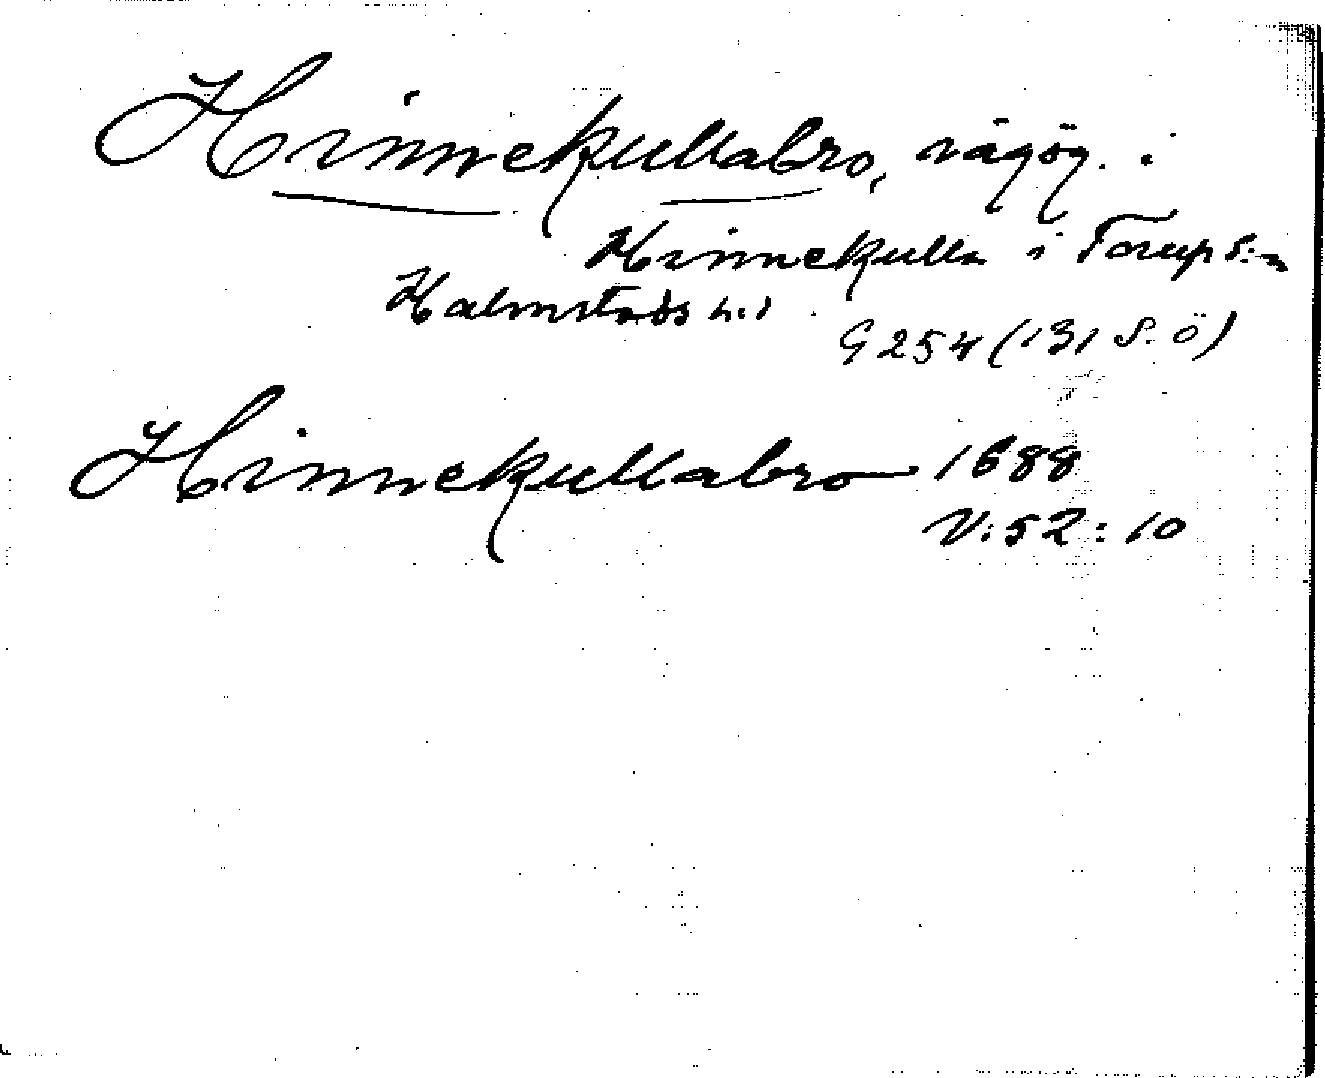 Hinnekullabro, vågög. i
Hinnekulla i Torups s:n
Halmstads h:d
G 254 (131 S. Ö)
Hinnekullabro 1688
V:52:10